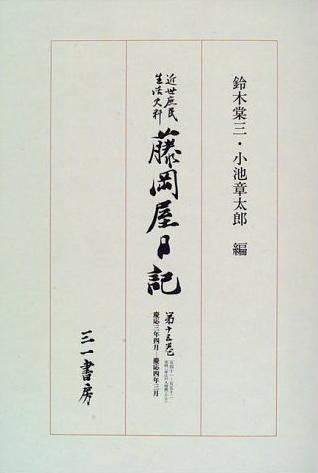 鈴木棠三・小池章太郎 編
近世庶民
生活史料
藤岡屋日記
第十五巻
慶応三年四月―慶応四年三月
三一書房